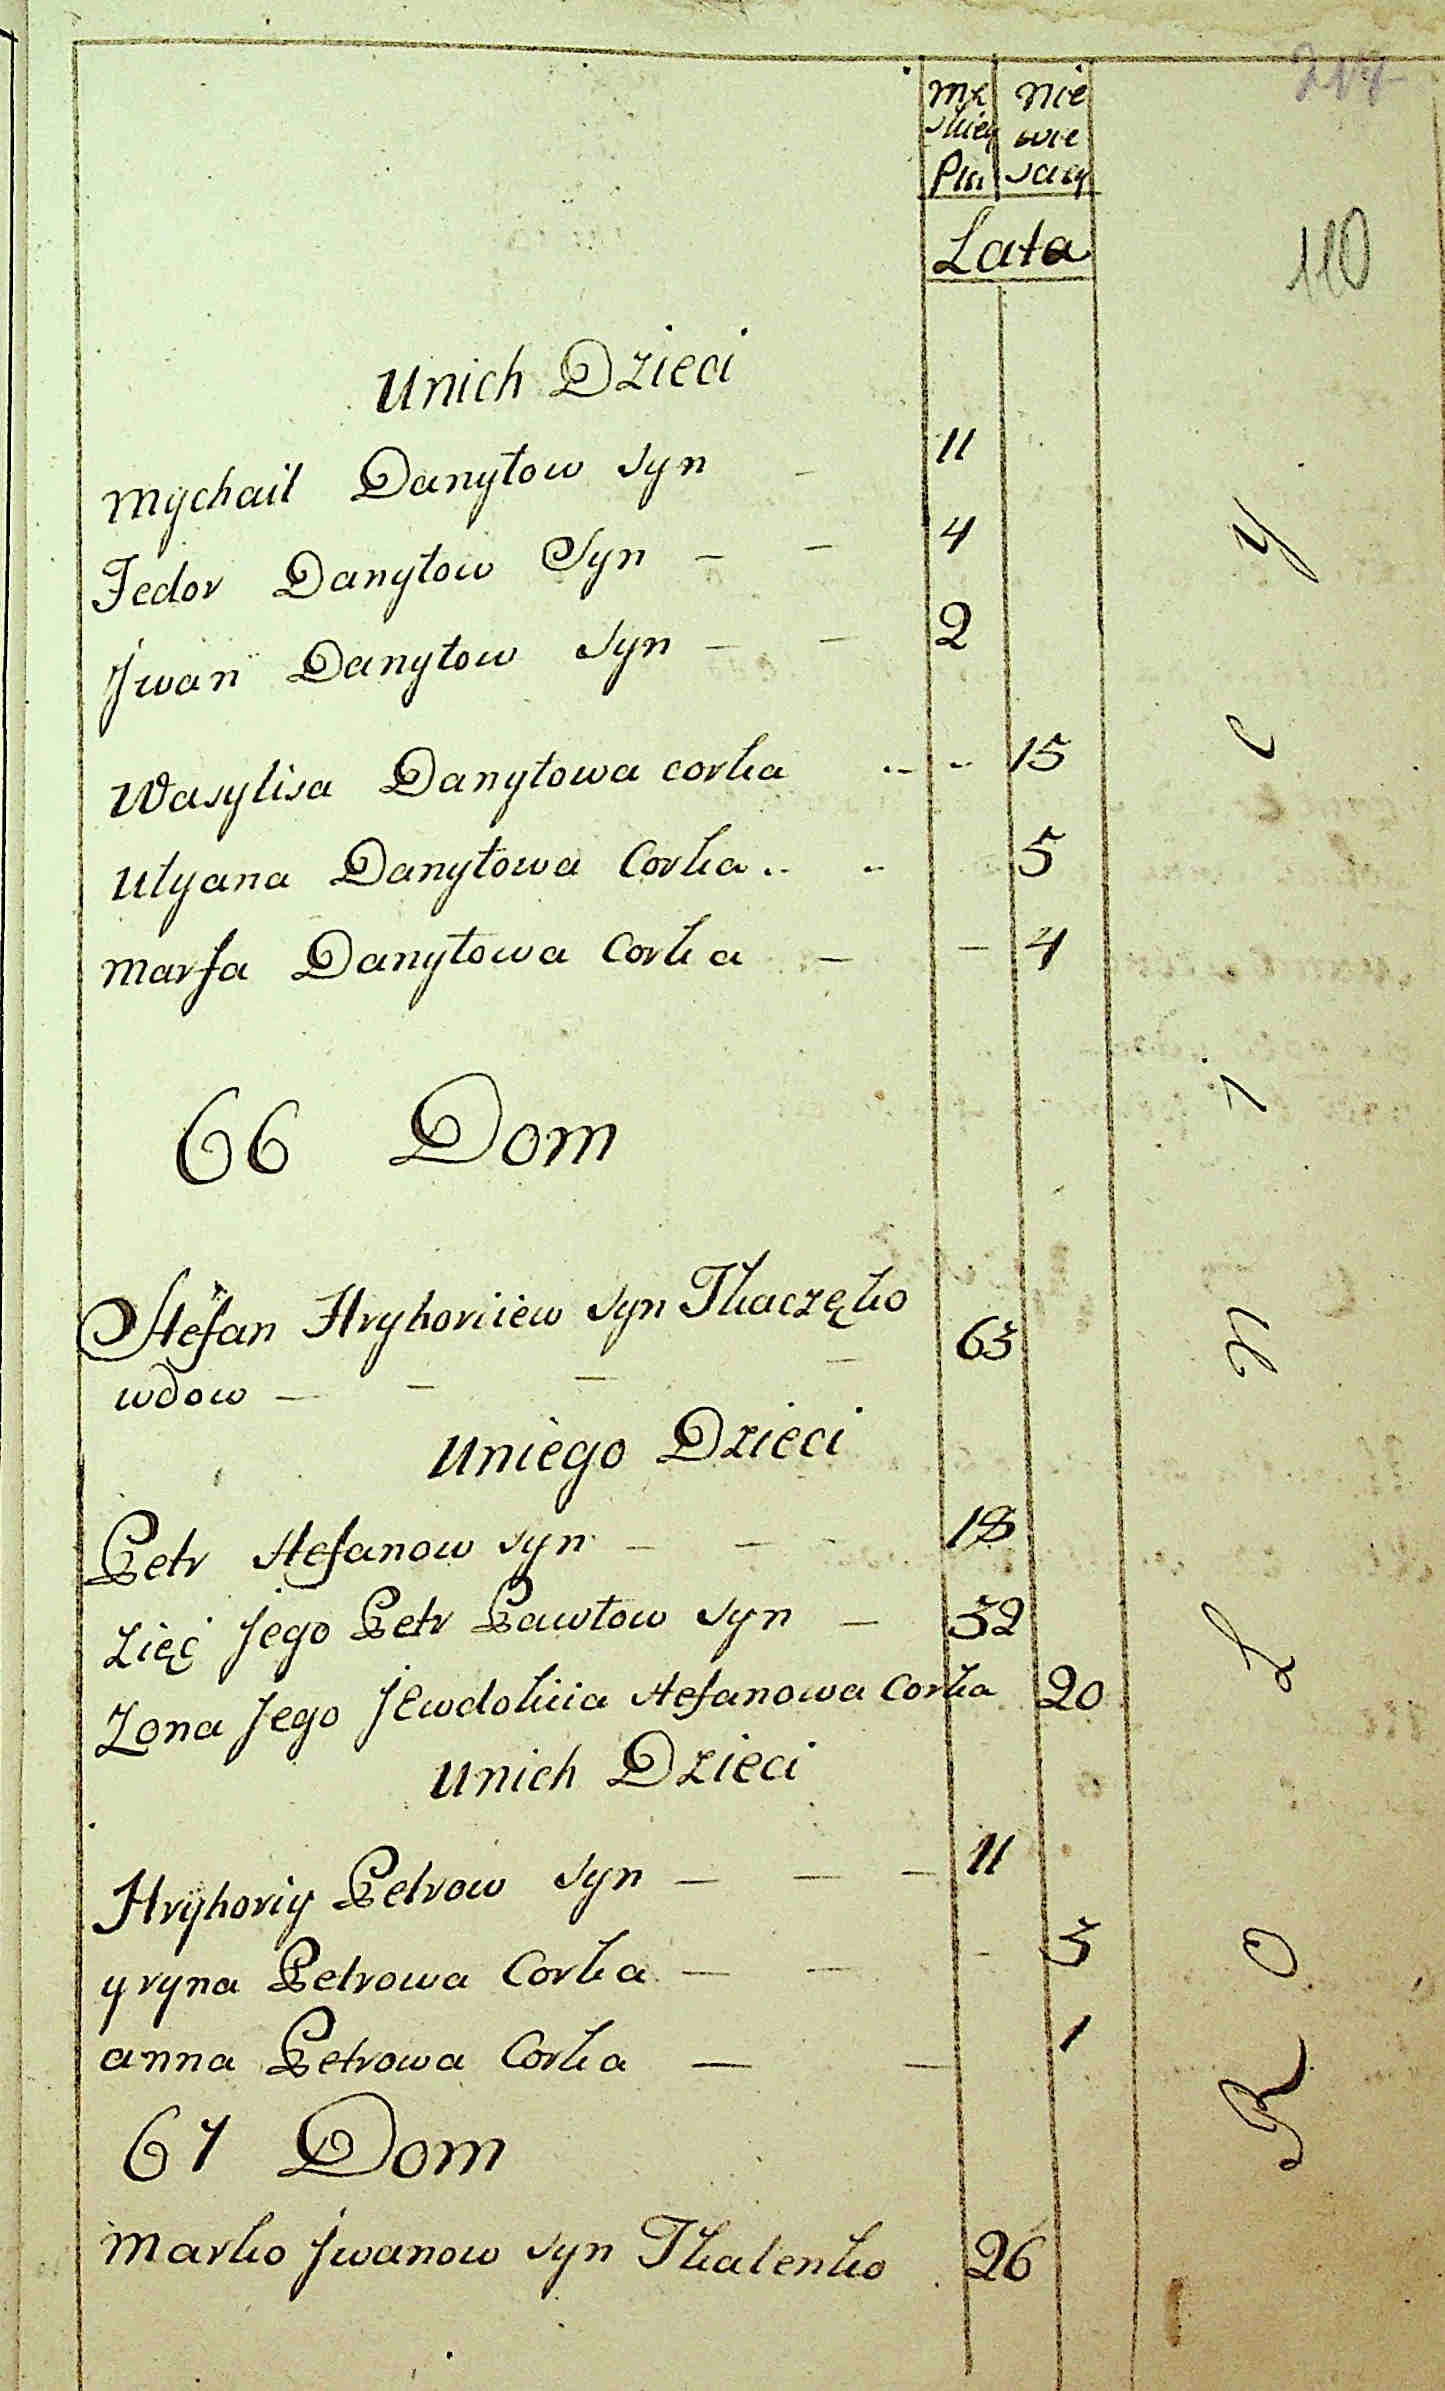 mę nie
skiey wie
Płci sciey
Lata
110
Unich Dzieci
Mychail Danyłow syn - 11
Fedor Danyłow Syn - - 4
Jwan Danyłow syn - - 2
Wasylisa Danyłowa corka 15
Ulyana Danyłowa Corka 5
Marfa Danyłowa Corka - - 4
66 Dom
Stefan Hryhoriiew syn Tkaczęko
wdow - - - - 63
Uniego Dzieci
Petr Stefanow syn - - - 18
Zięć Jego Petr Pawłow syn - 32
Zona Jego Jewdokiia Stefanowa Corka 20
Unich Dzieci
Hryhoriy Petrow syn - - - 11
yryna Petrowa Corka - - - 3
anna Petrowa Corka - - 1
67 Dom
Marko Jwanow syn Tkalenko 26
Rolnicy